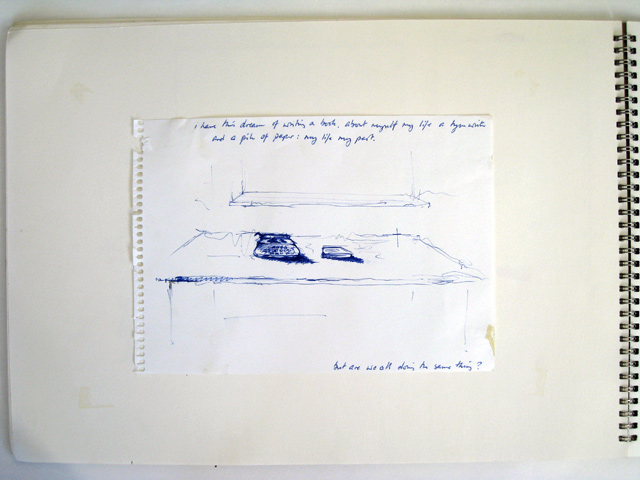 I have this dream of writing a book, about myself my life a typewriter
and a pile of paper: my life my past.
but are we all doing the same thing?